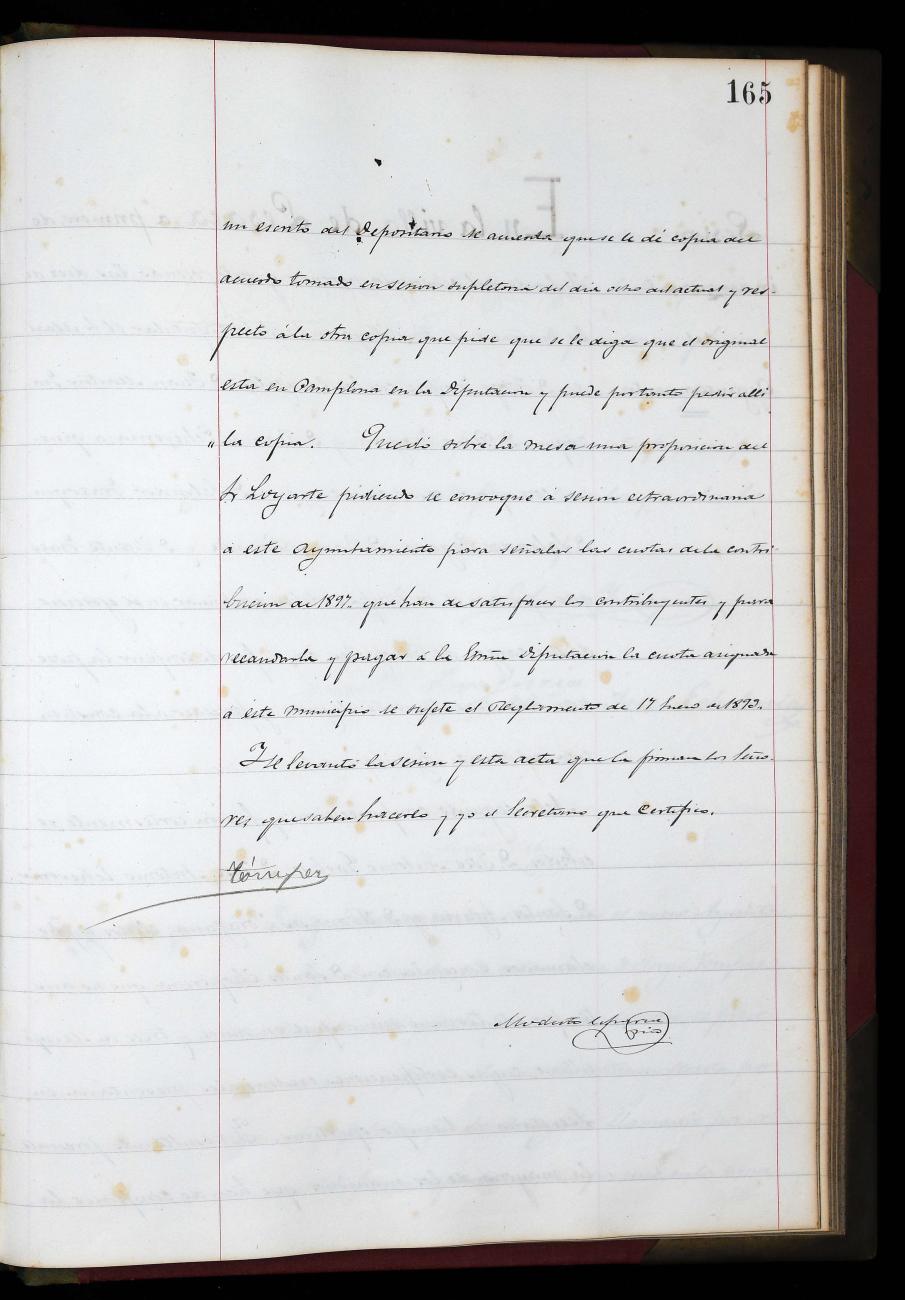 165
un escrito del Depositario se acuerda que se le dé copia del
acuerdo tomado en sesion supletoria del dia ocho del actual y res-
pecto á la otra copia que pide que se le diga que el original
esta en Pamplona en la Diputacion y puede por tanto pedir alli
" la copia. Quedó sobre la mesa una proposicion del
Sr Loyarte pidiendo se convoque á sesion extraordinaria
á este Ayuntamiento para señalar las cuotas de la contri-
bucion de 1897. que han de satisfacer los contribuyentes y para
recaudarla y pagar á la Exma Diputacion la cuota asignada
á este municipio se sujete el Reglamento de 17 Enero de 1893.
Y se levantó la sesion y esta acta que la firman los Seño-
res que saben hacerlo y yo el Secretario que Certifico.
Modesto